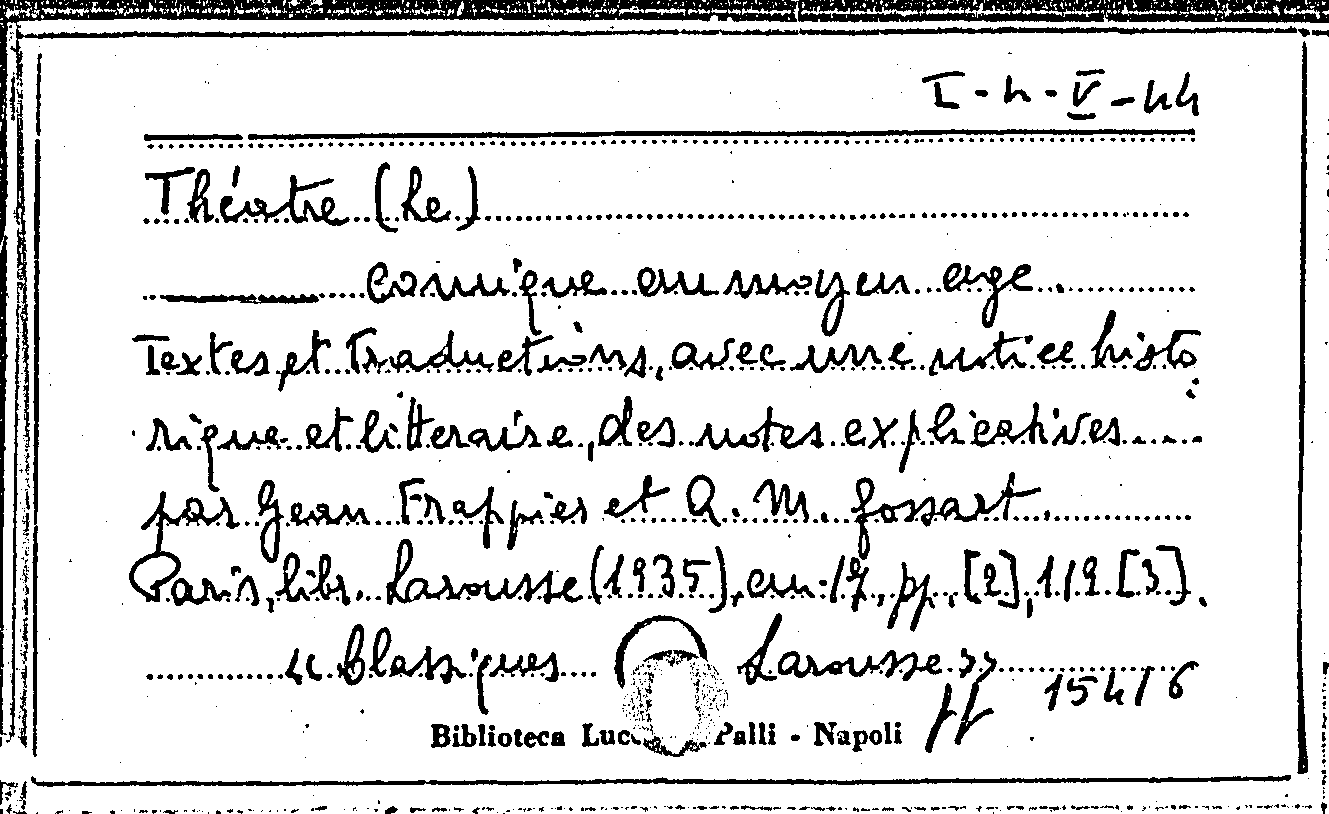 I-4-V-44
Théatre (Le)
comique au moyen age.
Textes et traductions, avec une notice histo
rique et litteraire, des notes explicatives....
par Jean Frappier et A. M. Gossart.
Paris, libr. Larousse (1935), cm. 17, pp. [2], 112 [3].
"Classiques Larousse"
154176
Biblioteca Palli - Napoli